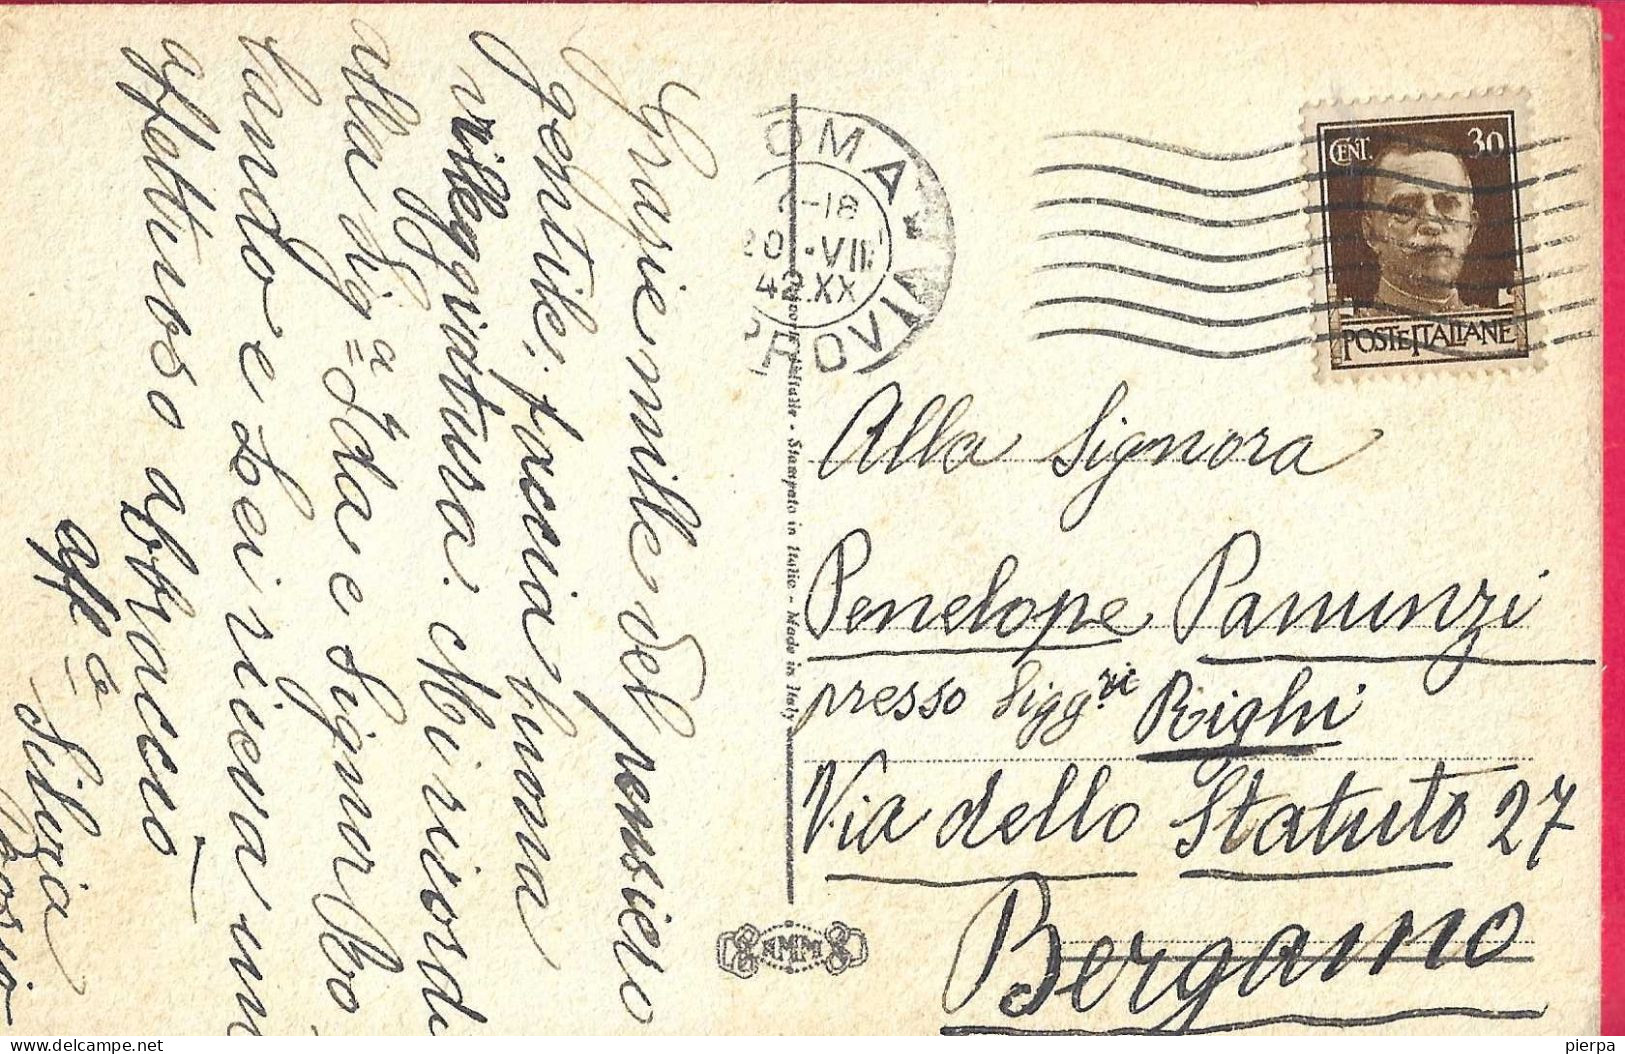 Grazie mille del pensiero
gentile: faccia buona
villeggiatura. Mi ricordi
alla Sig.a Ida e Signor Ro
lando e Lei riceva un
affettuoso abbraccio
aff.a
Silvia
OMA
-18
20 -VII
42.XX
PROVI
CENT. 30
POSTE ITALIANE
Stampato in Italia - Made in Italy
AMM
Alla Signora
Penelope Panunzi
presso Sigg.ri Righi
Via dello Statuto 27
Bergamo
pierpa